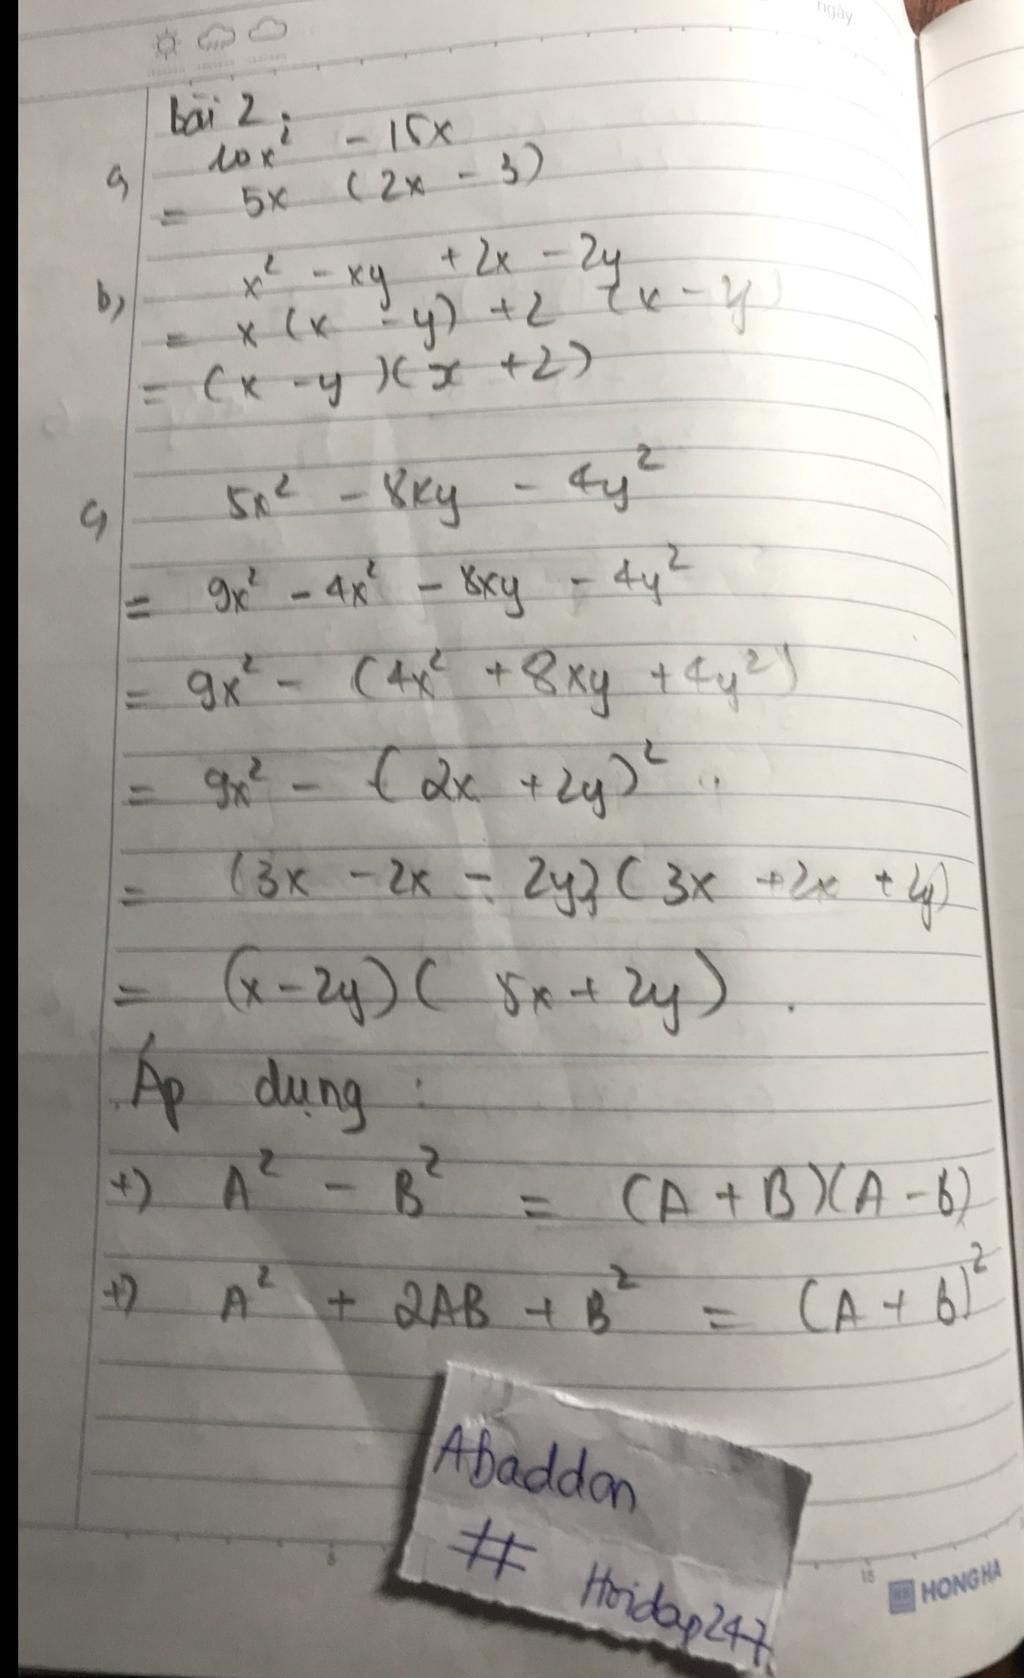 ngày
bài 2:
a, 10x² - 15x
= 5x (2x - 3)
b, x² - xy + 2x - 2y
= x (x - y) + 2 (x - y)
= (x - y)(x + 2)
c, 5x² - 8xy - 4y²
= 9x² - 4x² - 8xy - 4y²
= 9x² - (4x² + 8xy + 4y²)
= 9x² - (2x + 2y)²
= (3x - 2x - 2y)(3x + 2x + 2y)
= (x - 2y)(5x + 2y).
Áp dụng:
+) A² - B² = (A + B)(A - B)
+) A² + 2AB + B² = (A + B)²
Abaddon
# Hoidap247
HONG HA